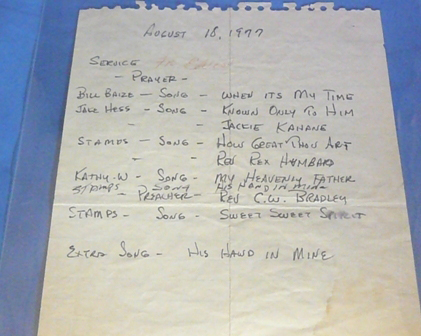 AUGUST 18, 1977
SERVICE
- PRAYER -
BILL BAIZE - SONG - WHEN ITS MY TIME
JAKE HESS - SONG - KNOWN ONLY TO HIM
- JACKIE KAHANE
STAMPS - SONG - HOW GREAT THOU ART
- REV REX HUMBARD
KATHY-W - SONG - MY HEAVENLY FATHER
STAMPS SONG HIS HAND IN MINE
- PREACHER - REV C.W. BRADLEY
STAMPS - SONG - SWEET SWEET SPIRIT
EXTRA SONG - HIS HAND IN MINE